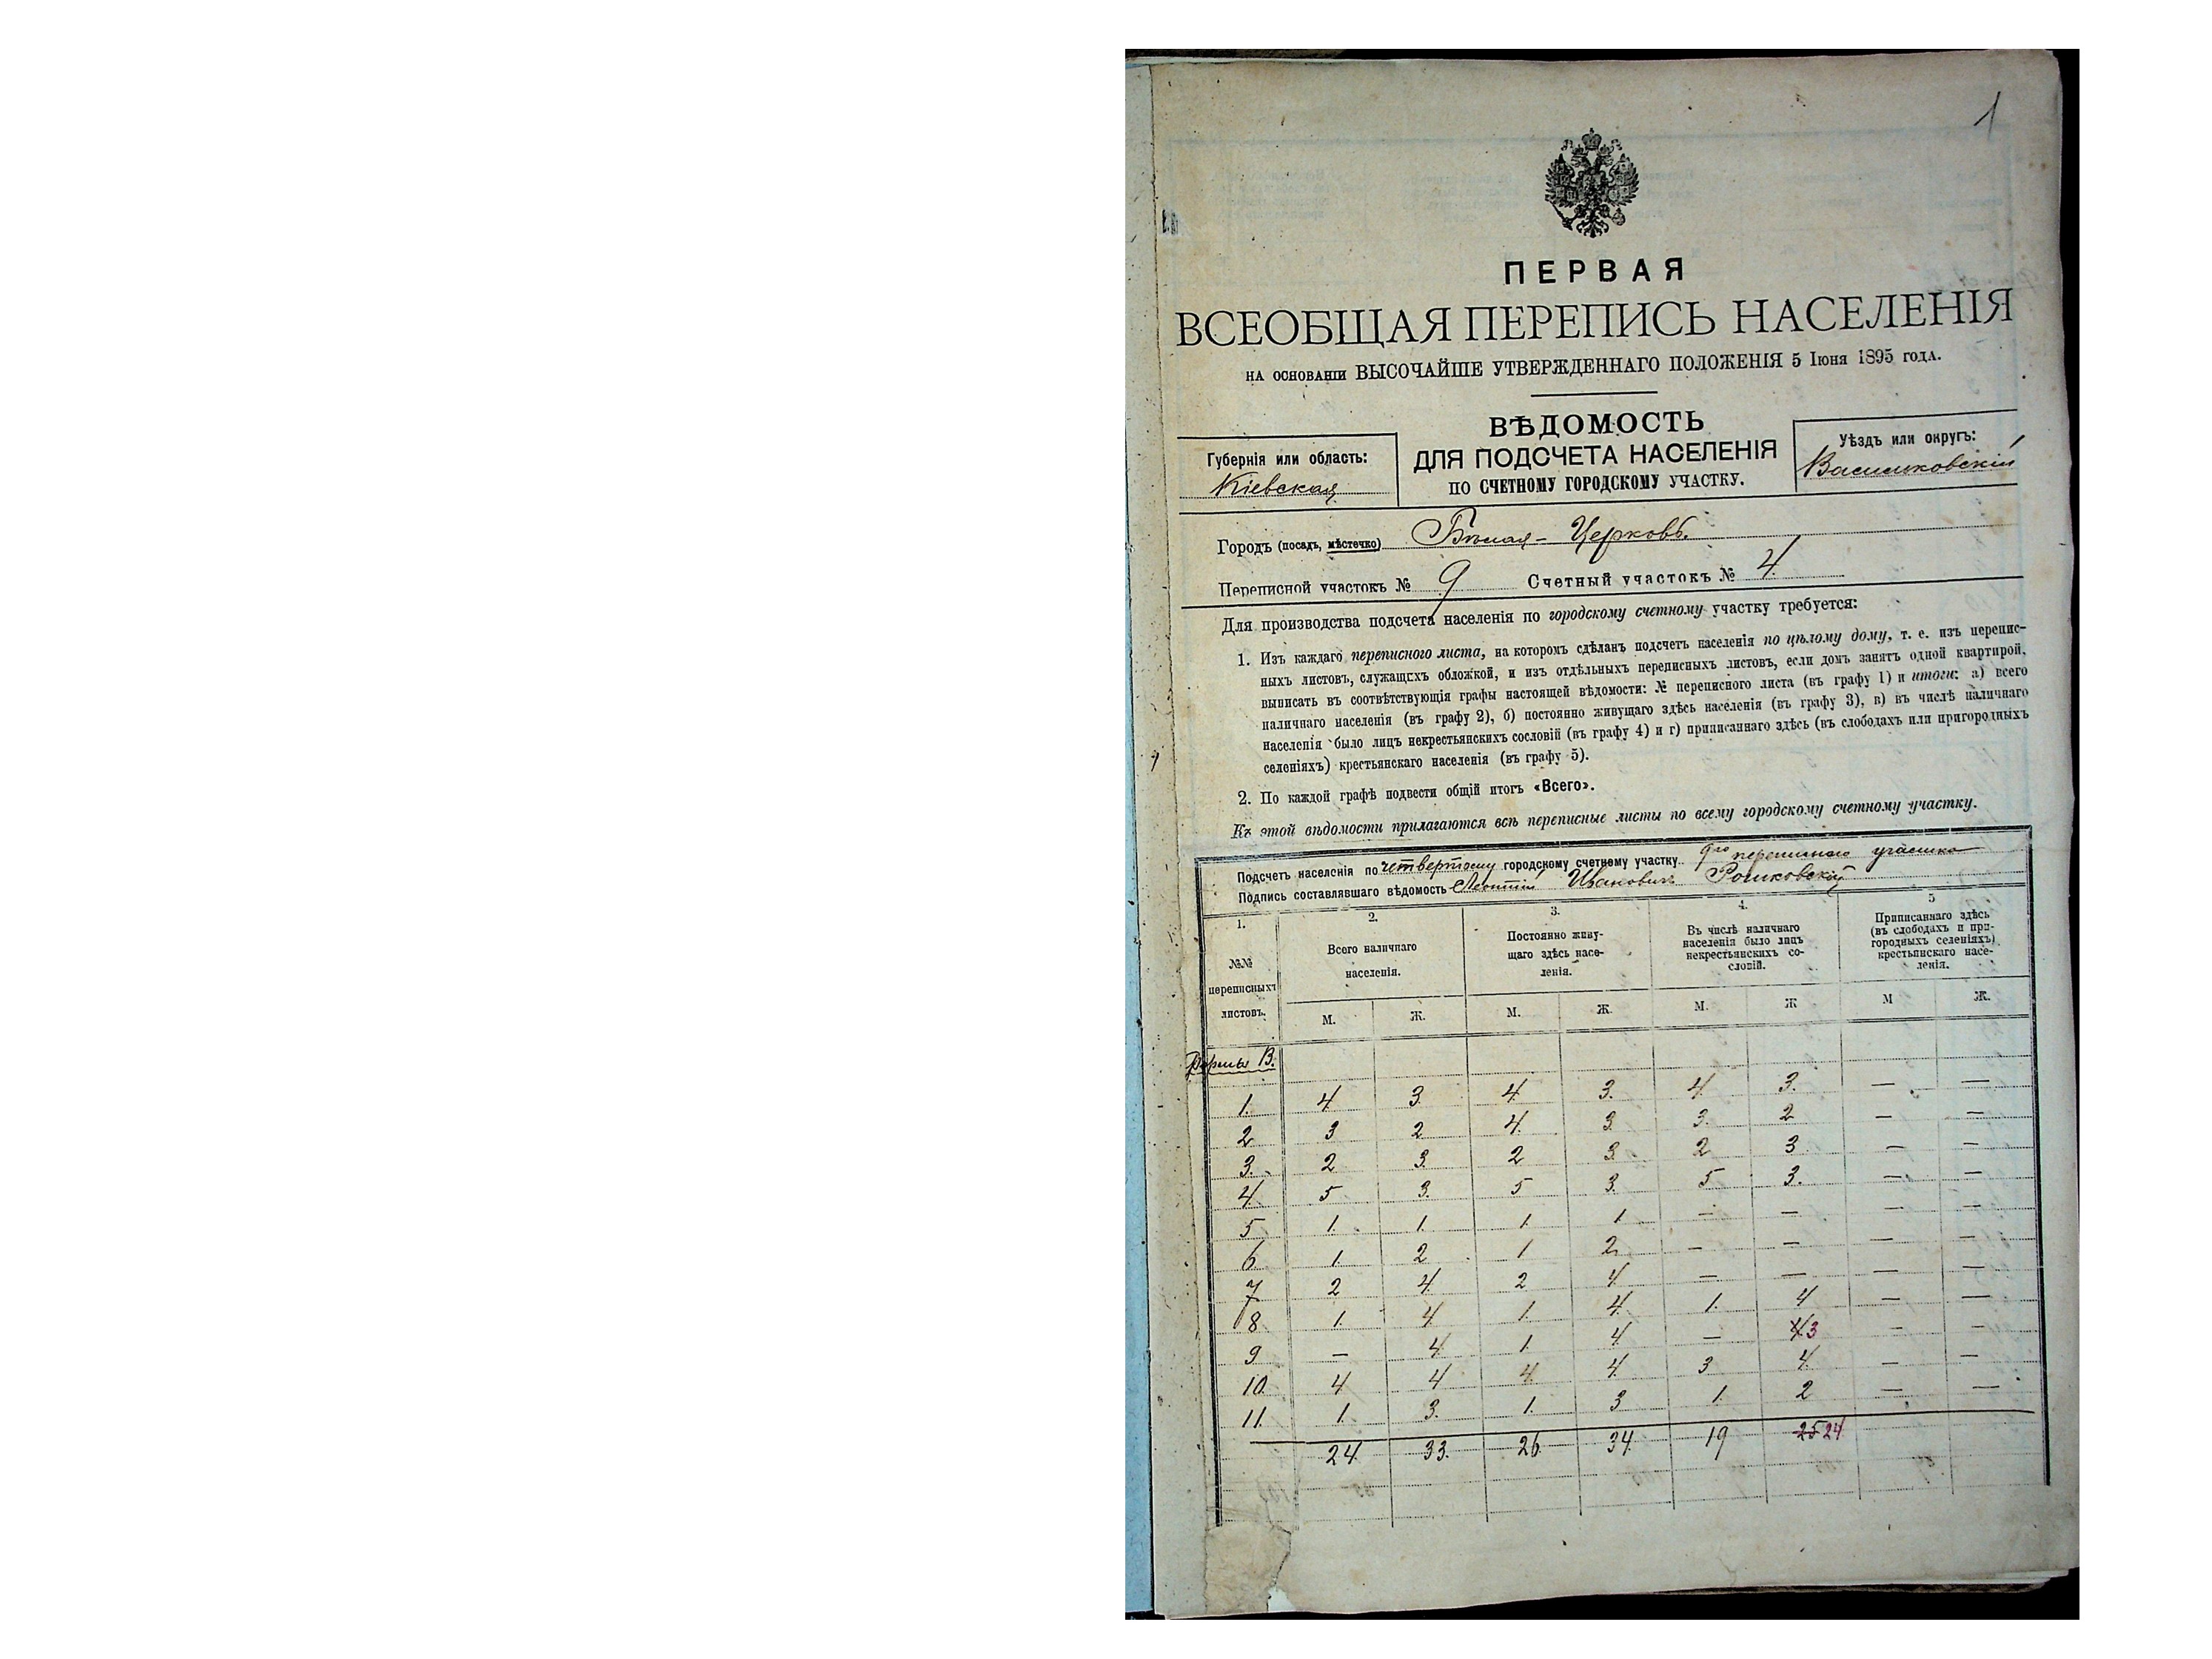 1
ПЕРВАЯ
ВСЕОБЩАЯ ПЕРЕПИСЬ НАСЕЛЕНІЯ
НА ОСНОВАНІИ ВЫСОЧАЙШЕ УТВЕРЖДЕННАГО ПОЛОЖЕНІЯ 5 Іюня 1895 ГОДА.
ВѢДОМОСТЬ
ДЛЯ ПОДСЧЕТА НАСЕЛЕНІЯ
ПО СЧЕТНОМУ ГОРОДСКОМУ УЧАСТКУ.
Губернія или область:
Кіевская
Уѣздъ или округъ:
Васильковскій
Городъ (посадъ, мѣстечко) Бѣлая-Церковь.
Переписной участокъ № 9 Счетный участокъ № 4.
Для производства подсчета населенія по городскому счетному участку требуется:
1. Изъ каждаго переписного листа, на которомъ сдѣланъ подсчетъ населенія по цѣлому дому, т. е. изъ перепис-
ныхъ листовъ, служащихъ обложкой, и изъ отдѣльныхъ переписныхъ листовъ, если домъ занятъ одной квартирой,
выписать въ соотвѣтствующія графы настоящей вѣдомости: № переписного листа (въ графу 1) и итоги: а) всего
наличнаго населенія (въ графу 2), б) постоянно живущаго здѣсь населенія (въ графу 3), в) въ числѣ наличнаго
населенія было лицъ некрестьянскихъ сословій (въ графу 4) и г) приписаннаго здѣсь (въ слободахъ или пригородныхъ
селеніяхъ) крестьянскаго населенія (въ графу 5).
2. По каждой графѣ подвести общій итогъ «Всего».
Къ этой вѣдомости прилагаются всѣ переписные листы по всему городскому счетному участку.
Подсчетъ населенія по четвертому городскому счетному участку 9го переписнаго участка
Подпись составлявшаго вѣдомость Леонтій Ивановичъ Рошковскій
1. 2. 3. 4. 5
№№ переписныхъ листовъ.
Всего наличнаго населенія.
Постоянно живу-
щаго здѣсь насе-
ленія.
Въ числѣ наличнаго
населенія было лицъ
некрестьянскихъ со-
словій.
Приписаннаго здѣсь
(въ слободахъ и при-
городныхъ селеніяхъ)
крестьянскаго насе-
ленія.
М. Ж. М. Ж. М. Ж М Ж.
Форма В.
1. 4 3. 4. 3. 4. 3. — —
2 3 2 4. 3 3. 2 — —
3. 2 3. 2 3. 2 3 — —
4. 5 3. 5 3. 5 3. — —
5 1. 1. 1. 1. — — — —
6. 1. 2 1 2 — — — —
7 2 4. 2 4 — — — —
8 1. 4 1. 4. 1. 4 — —
9 — 4. 1. 4. — 4 3 — —
10. 4 4 4 4. 3 4. — —
11. 1. 3. 1. 3 1. 2 — —
24. 33. 26. 34. 19 25 24